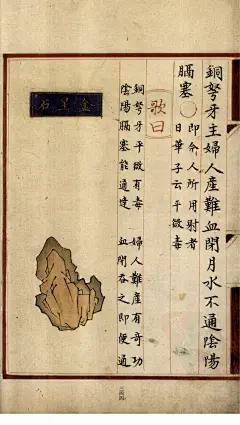 銅弩牙主婦人產難血閉月水不通陰陽
膈塞〇即今人所用射者
日華子云平微毒
歌曰
銅弩牙平微有毒 婦人難產有奇功
陰陽膈塞能通達 血閉吞之即便通
金星石